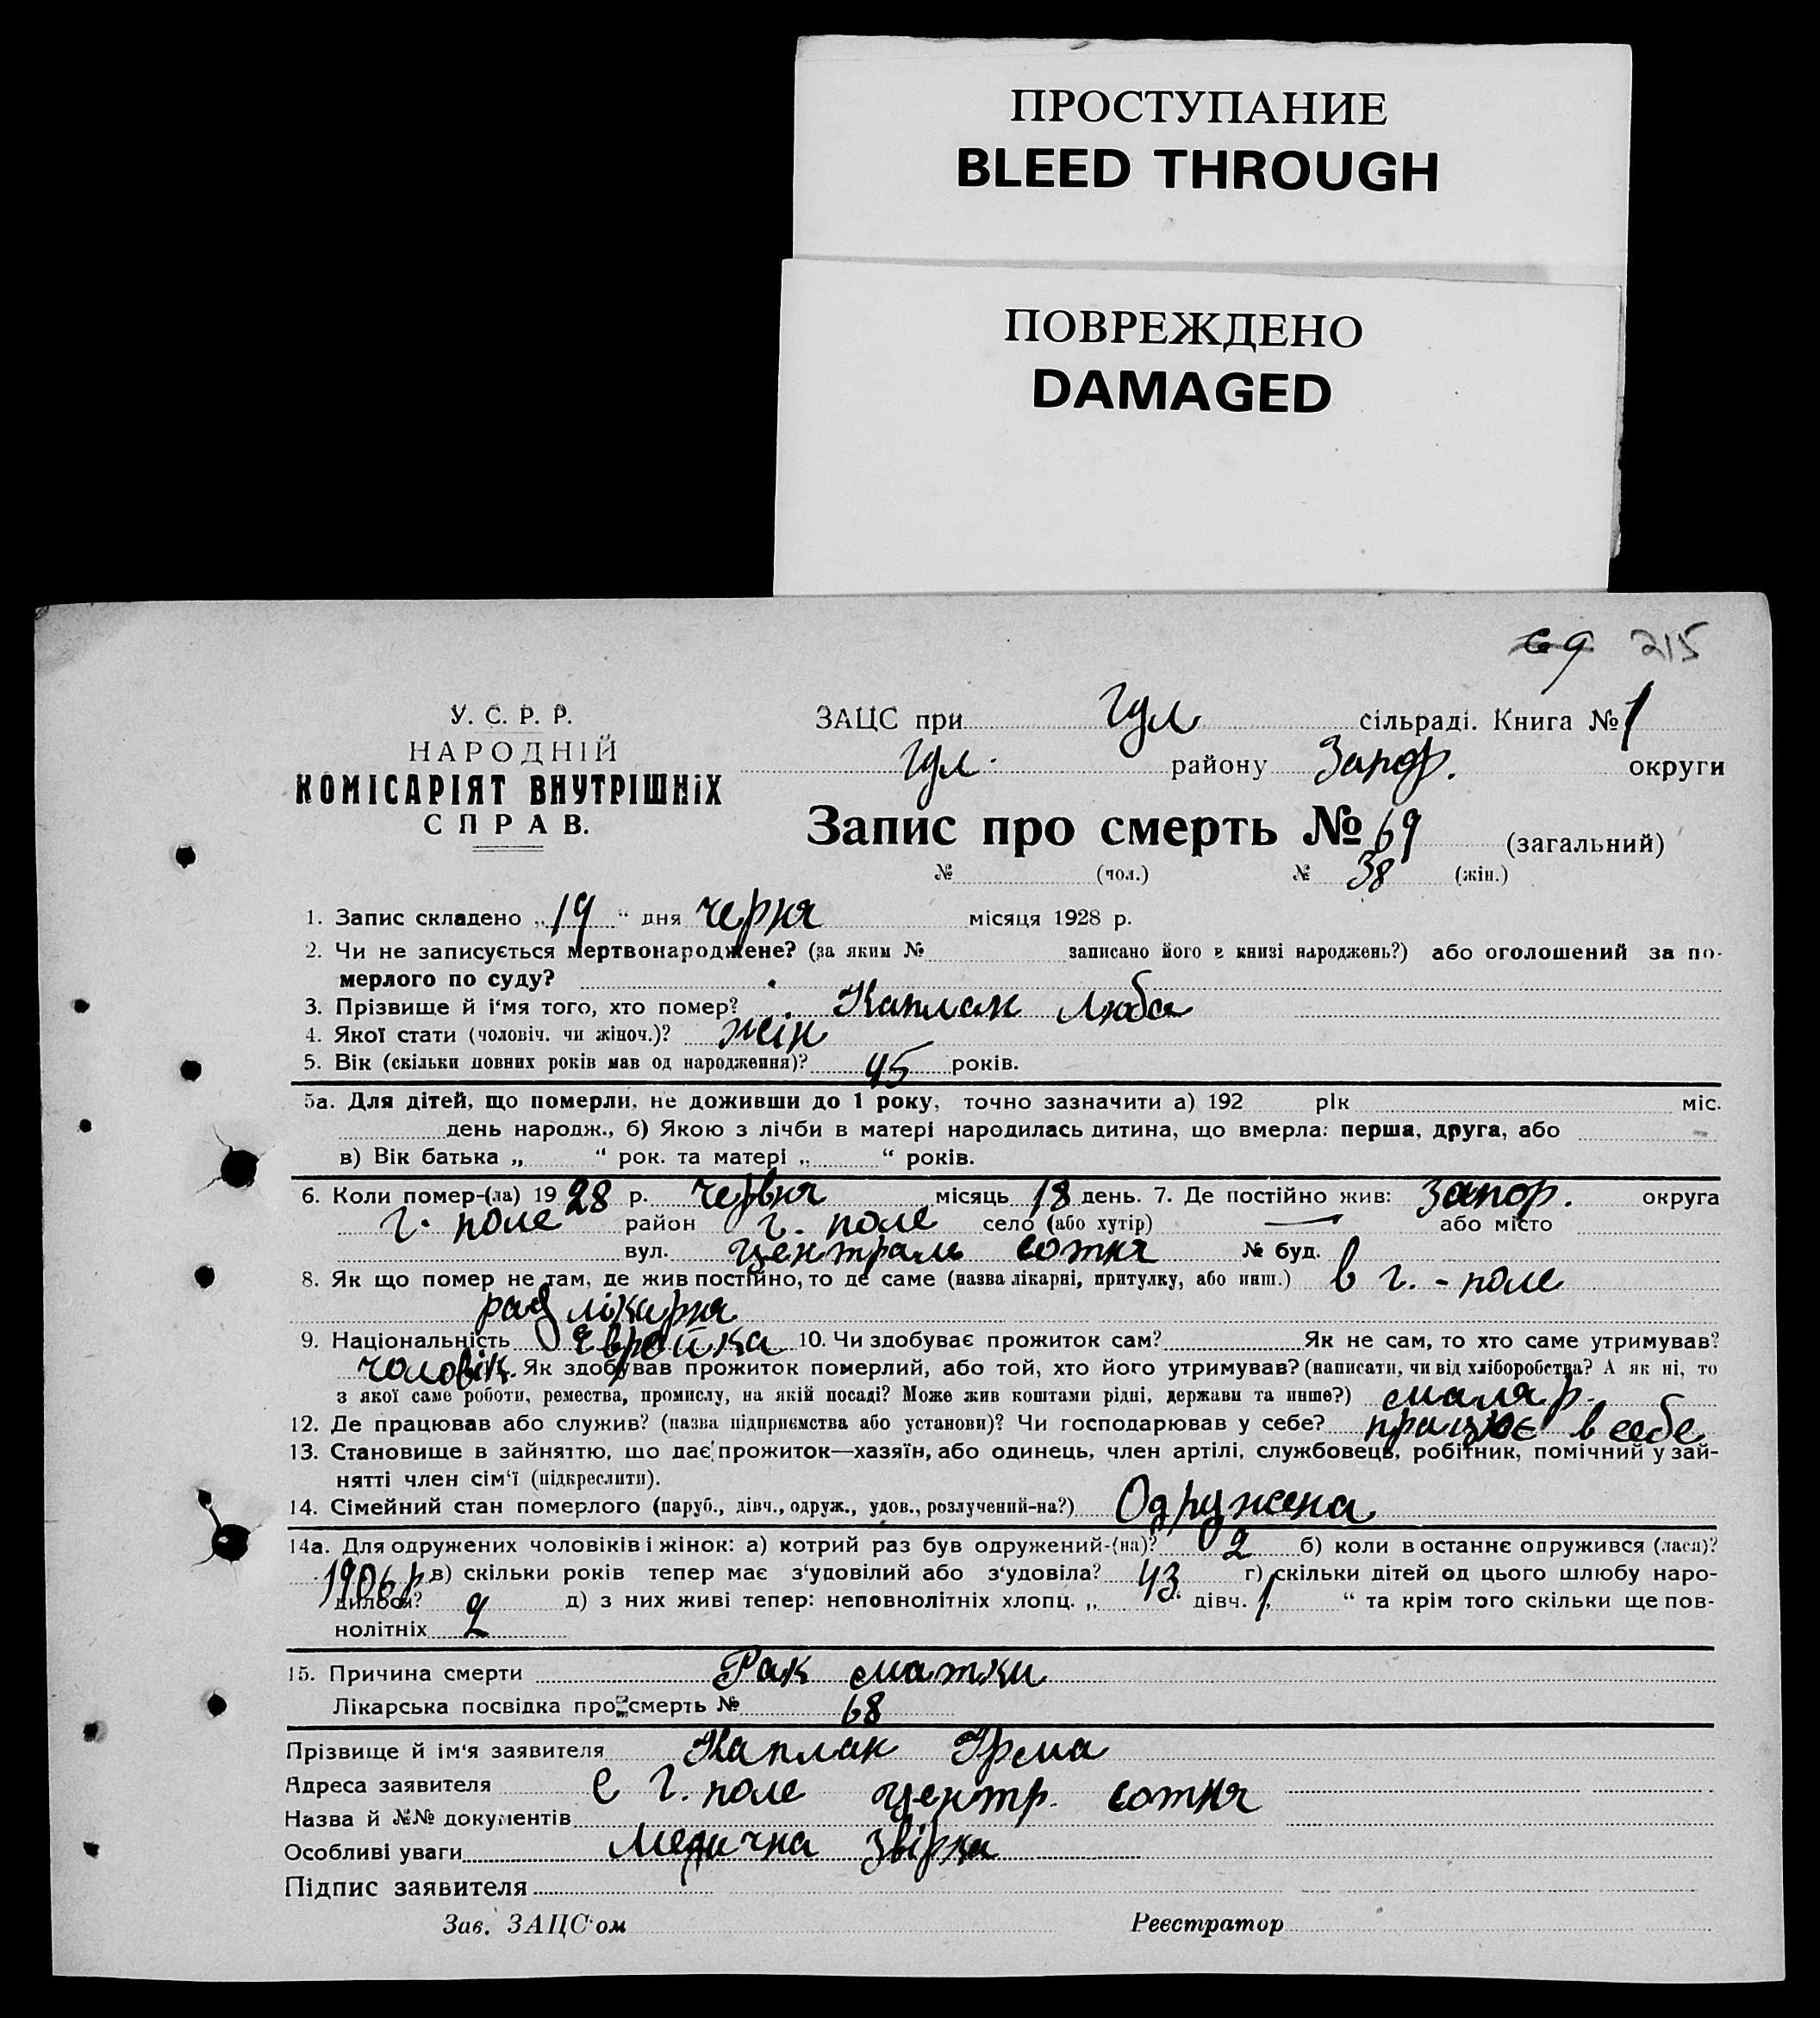 ПРОСТУПАНИЕ
BLEED THROUGH
ПОВРЕЖДЕНО
DAMAGED
69 215
У. С. Р. Р.
НАРОДНІЙ
КОМІСАРІЯТ ВНУТРІШНіХ
СПРАВ.
ЗАЦС при Гул сільраді. Книга № 1
Гул. району Запор. округи
Запис про смерть № 69 (загальний)
№ (чол.) № 38 (жін.)
1. Запис складено „19“ дня черня місяця 1928 р.
2. Чи не записується мертвонароджене? (за яким № записано його в книзі народжень?) або оголошений за по-
мерлого по суду?
3. Прізвище й і'мя того, хто помер? Каплан Люба
4. Якої стати (чоловіч. чи жіноч.)? жін
5. Вік (скільки повних років мав од народження)? 45 років.
5а. Для дітей, що померли, не доживши до 1 року, точно зазначити а) 192 рік міс.
день народж., б) Якою з лічби в матері народилась дитина, що вмерла: перша, друга, або
в) Вік батька „ “ рок. та матері „ “ років.
6. Коли помер-(ла) 1928 р. червня місяць 18 день. 7. Де постійно жив: Запор. округа
Г. поле район Г. поле село (або хутір) — або місто
вул. централь сотня № буд.
8. Як що помер не там, де жив постійно, то де саме (назва лікарні, притулку, або инш.) в Г. - поле
рад лікарня
9. Національність Еврейка 10. Чи здобуває прожиток сам? Як не сам, то хто саме утримував?
чоловік. Як здобував прожиток померлий, або той, хто його утримував? (написати, чи від хліборобства? А як ні, то
з якої саме роботи, ремества, промислу, на якій посаді? Може жив коштами рідні, держави та инше?) маляр.
12. Де працював або служив? (назва підприємства або установи)? Чи господарював у себе? працює в себе
13. Становище в зайняттю, що дає прожиток—хазяїн, або одинець, член артілі, службовець, робітник, помічний у зай-
нятті член сім'ї (підкреслити).
14. Сімейний стан померлого (паруб., дівч., одруж., удов., розлучений-на?) Одружена
14а. Для одружених чоловіків і жінок: а) котрий раз був одружений-(на)? 2 б) коли в останнє одружився (лася)?
1906 р. в) скільки років тепер має з'удовілий або з'удовіла? 43 г) скільки дітей од цього шлюбу наро-
дилося? 2 д) з них живі тепер: неповнолітніх хлопц. „ “ дівч. „1 “ та крім того скільки ще пов-
нолітніх 2
15. Причина смерти Рак матки
Лікарська посвідка про смерть № 68
Прізвище й ім'я заявителя Каплан Ірма
Адреса заявителя с Г. поле центр. сотня
Назва й №№ документів
Особливі уваги Медична звірка
Підпис заявителя
Зав. ЗАЦС'ом Реєстратор